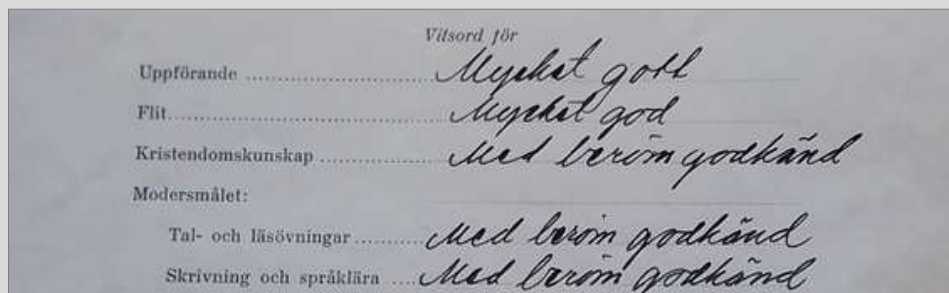 Vitsord för
Uppförande Mycket gott
Flit Mycket god
Kristendomskunskap Med beröm godkänd
Modersmålet:
Tal- och läsövningar Med beröm godkänd
Skrivning och språklära Med beröm godkänd